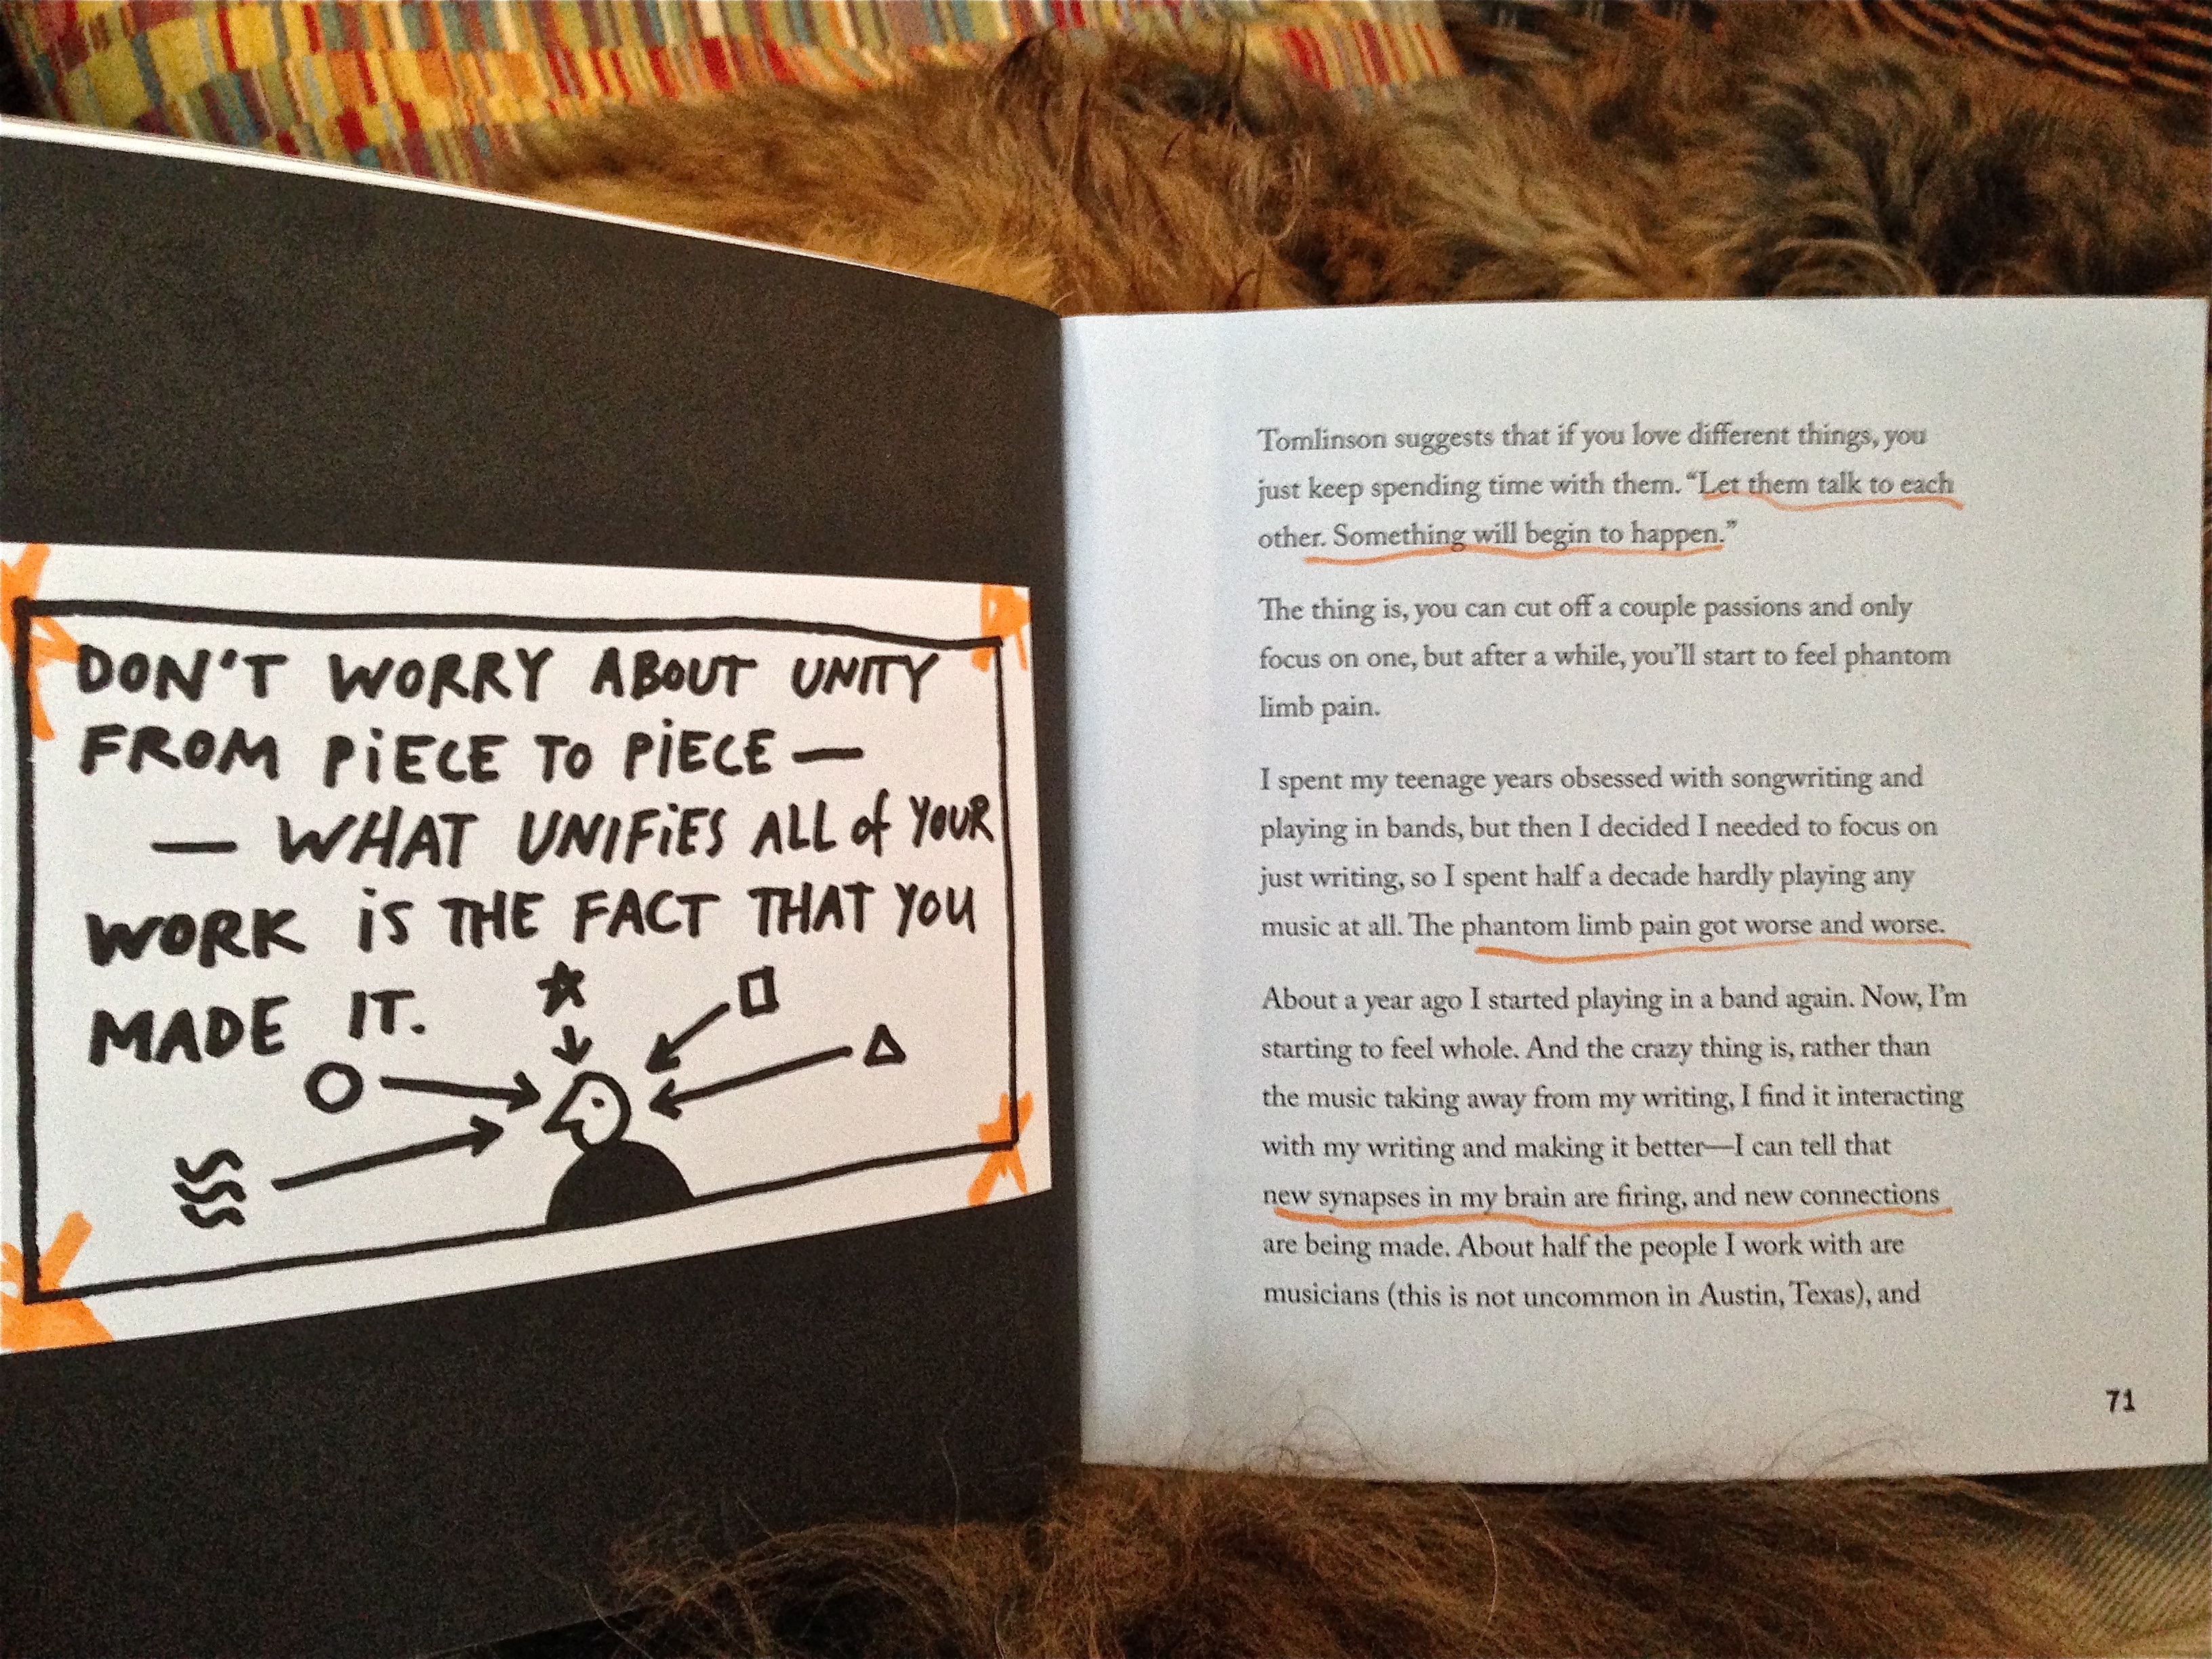 DON'T WORRY ABOUT UNITY
FROM PiECE TO PiECE —
— WHAT UNIFiES ALL of YOUR
WORK iS THE FACT THAT YOU
MADE IT.
Tomlinson suggests that if you love different things, you
just keep spending time with them. “Let them talk to each
other. Something will begin to happen.”
The thing is, you can cut off a couple passions and only
focus on one, but after a while, you’ll start to feel phantom
limb pain.
I spent my teenage years obsessed with songwriting and
playing in bands, but then I decided I needed to focus on
just writing, so I spent half a decade hardly playing any
music at all. The phantom limb pain got worse and worse.
About a year ago I started playing in a band again. Now, I’m
starting to feel whole. And the crazy thing is, rather than
the music taking away from my writing, I find it interacting
with my writing and making it better—I can tell that
new synapses in my brain are firing, and new connections
are being made. About half the people I work with are
musicians (this is not uncommon in Austin, Texas), and
71